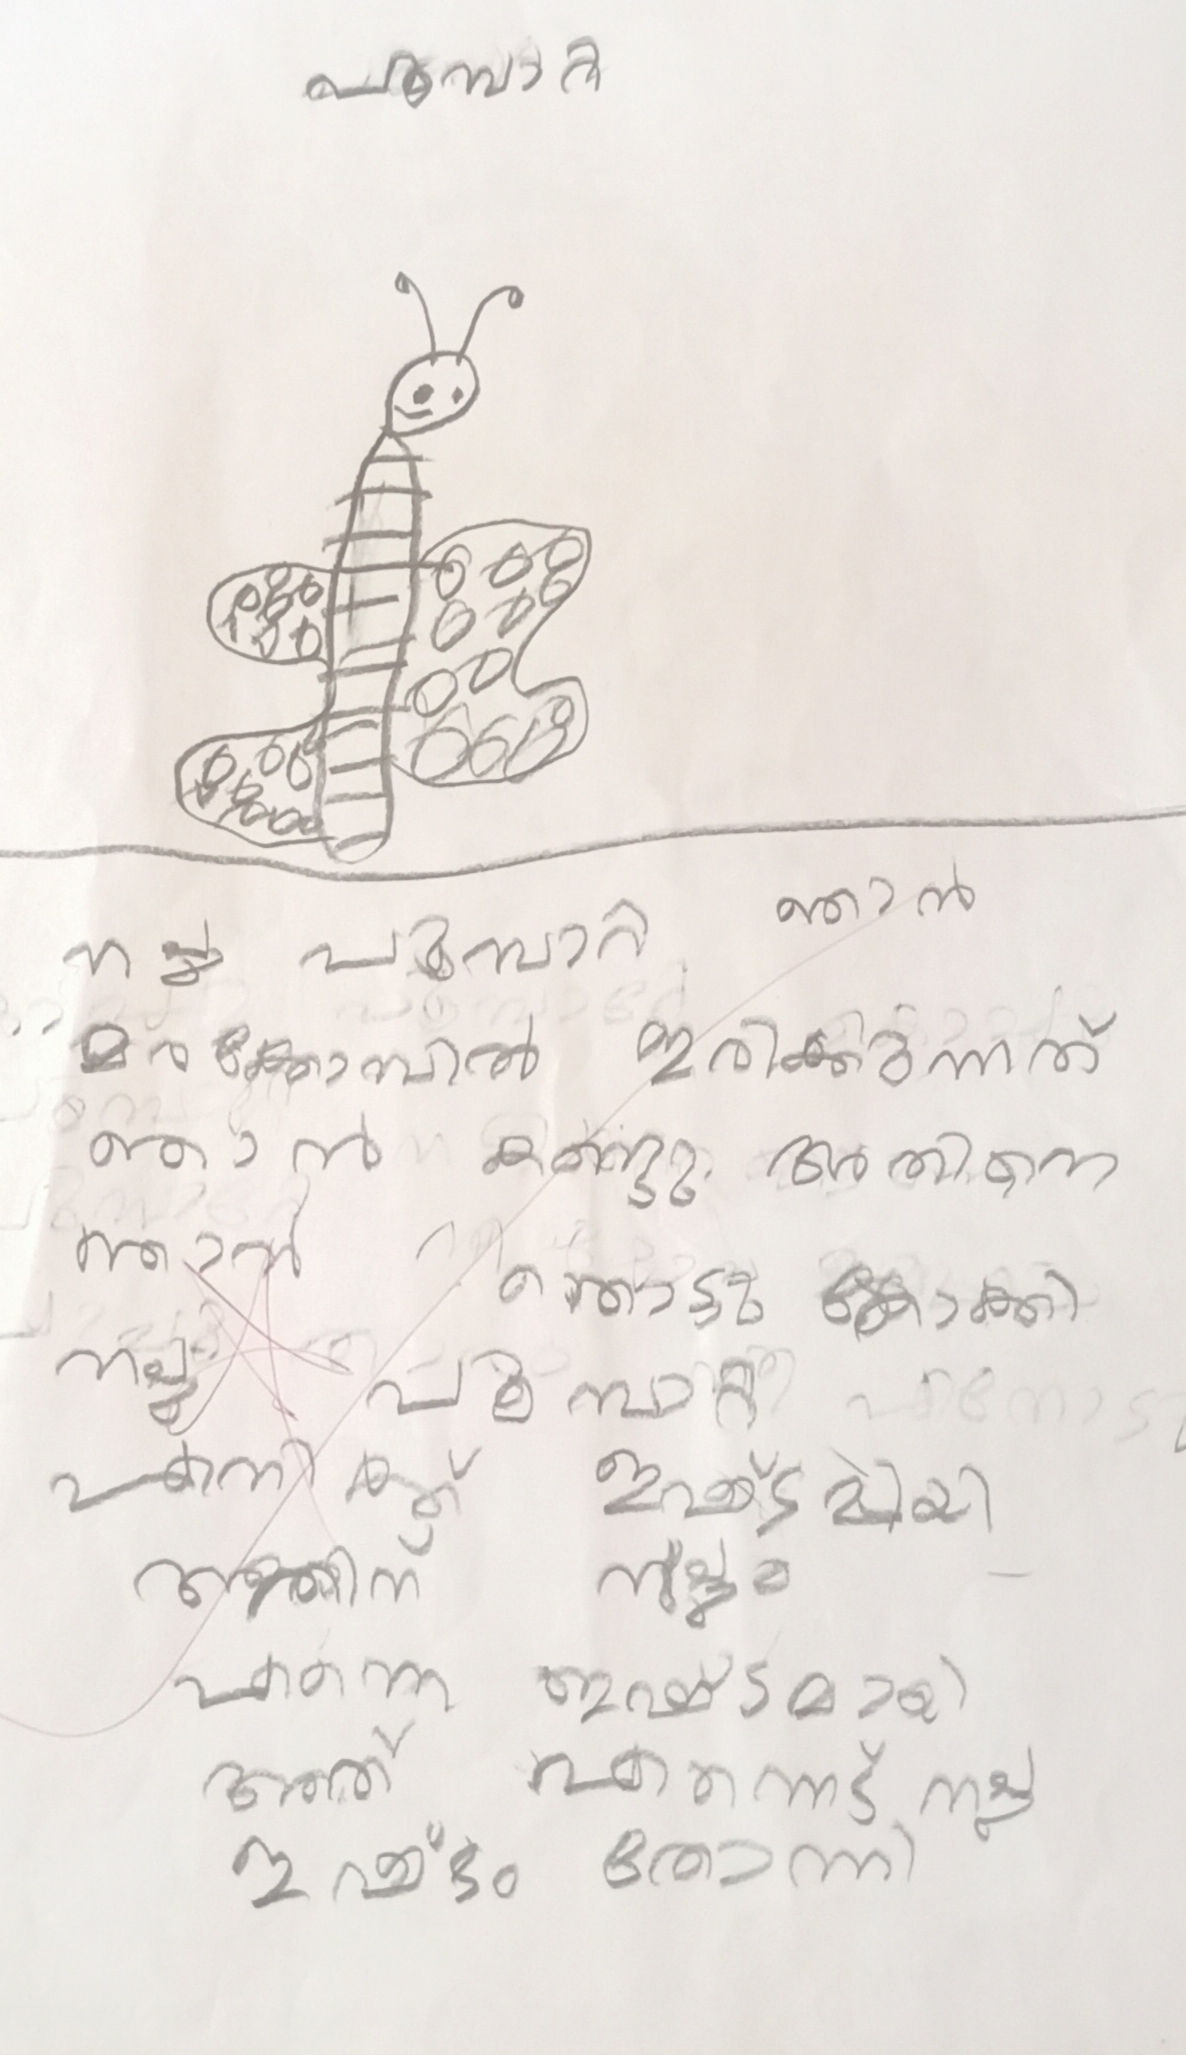 പൂമ്പാറ്റ
നല്ല പൂമ്പാറ്റ ഞാൻ
മരക്കോമ്പിൽ ഇരിക്കുന്നത്
ഞാൻ കണ്ടു. അതിനെ
ഞാൻ തൊട്ടു നോക്കി
നല്ല പൂമ്പാറ്റ
എനിക്ക് ഇഷ്ടമായി
അതിന് നല്ലം
എന്നെ ഇഷ്ടമായി
അത് എന്നെട് നല്ല
ഇഷ്ടം തോന്നി